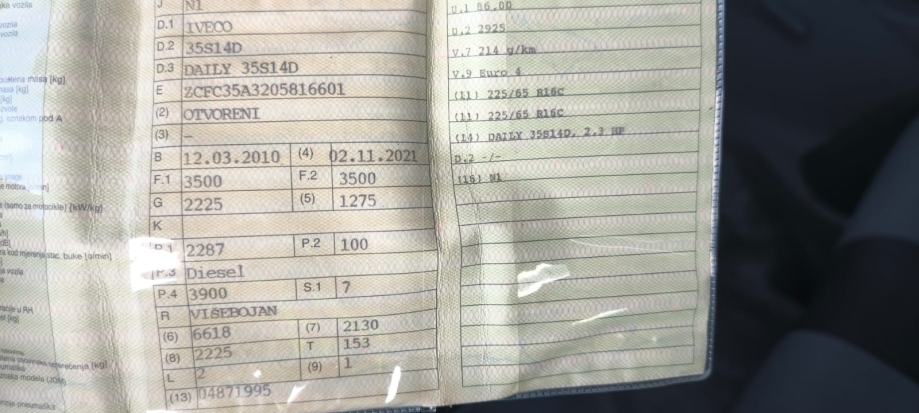 ka vozila
vozila
vozila
masa [kg]
masa [kg]
[kg]
oznakom pod A
(samo za motocikle) [kW/kg]
kod mjerenja stac. buke [o/min]
vozila
u RH
[kg]
[kg]
oznaka modela (JOM)
pneumatika
J N1
D.1 IVECO
D.2 35S14D
D.3 DAILY 35S14D
E ZCFC35A3205816601
(2) OTVORENI
(3) –
B 12.03.2010 (4) 02.11.2021
F.1 3500 F.2 3500
G 2225 (5) 1275
K
P.1 2287 P.2 100
P.3 Diesel
P.4 3900 S.1 7
R VIŠEBOJAN
(6) 6618 (7) 2130
(8) 2225 T 153
L 2 (9) 1
(13) 04871995
U.1 86.00
U.2 2925
V.7 214 g/km
V.9 Euro 4
(11) 225/65 R16C
(11) 225/65 R16C
(14) DAILY 35S14D, 2.3 HP
D.2 -/-
(16) N1